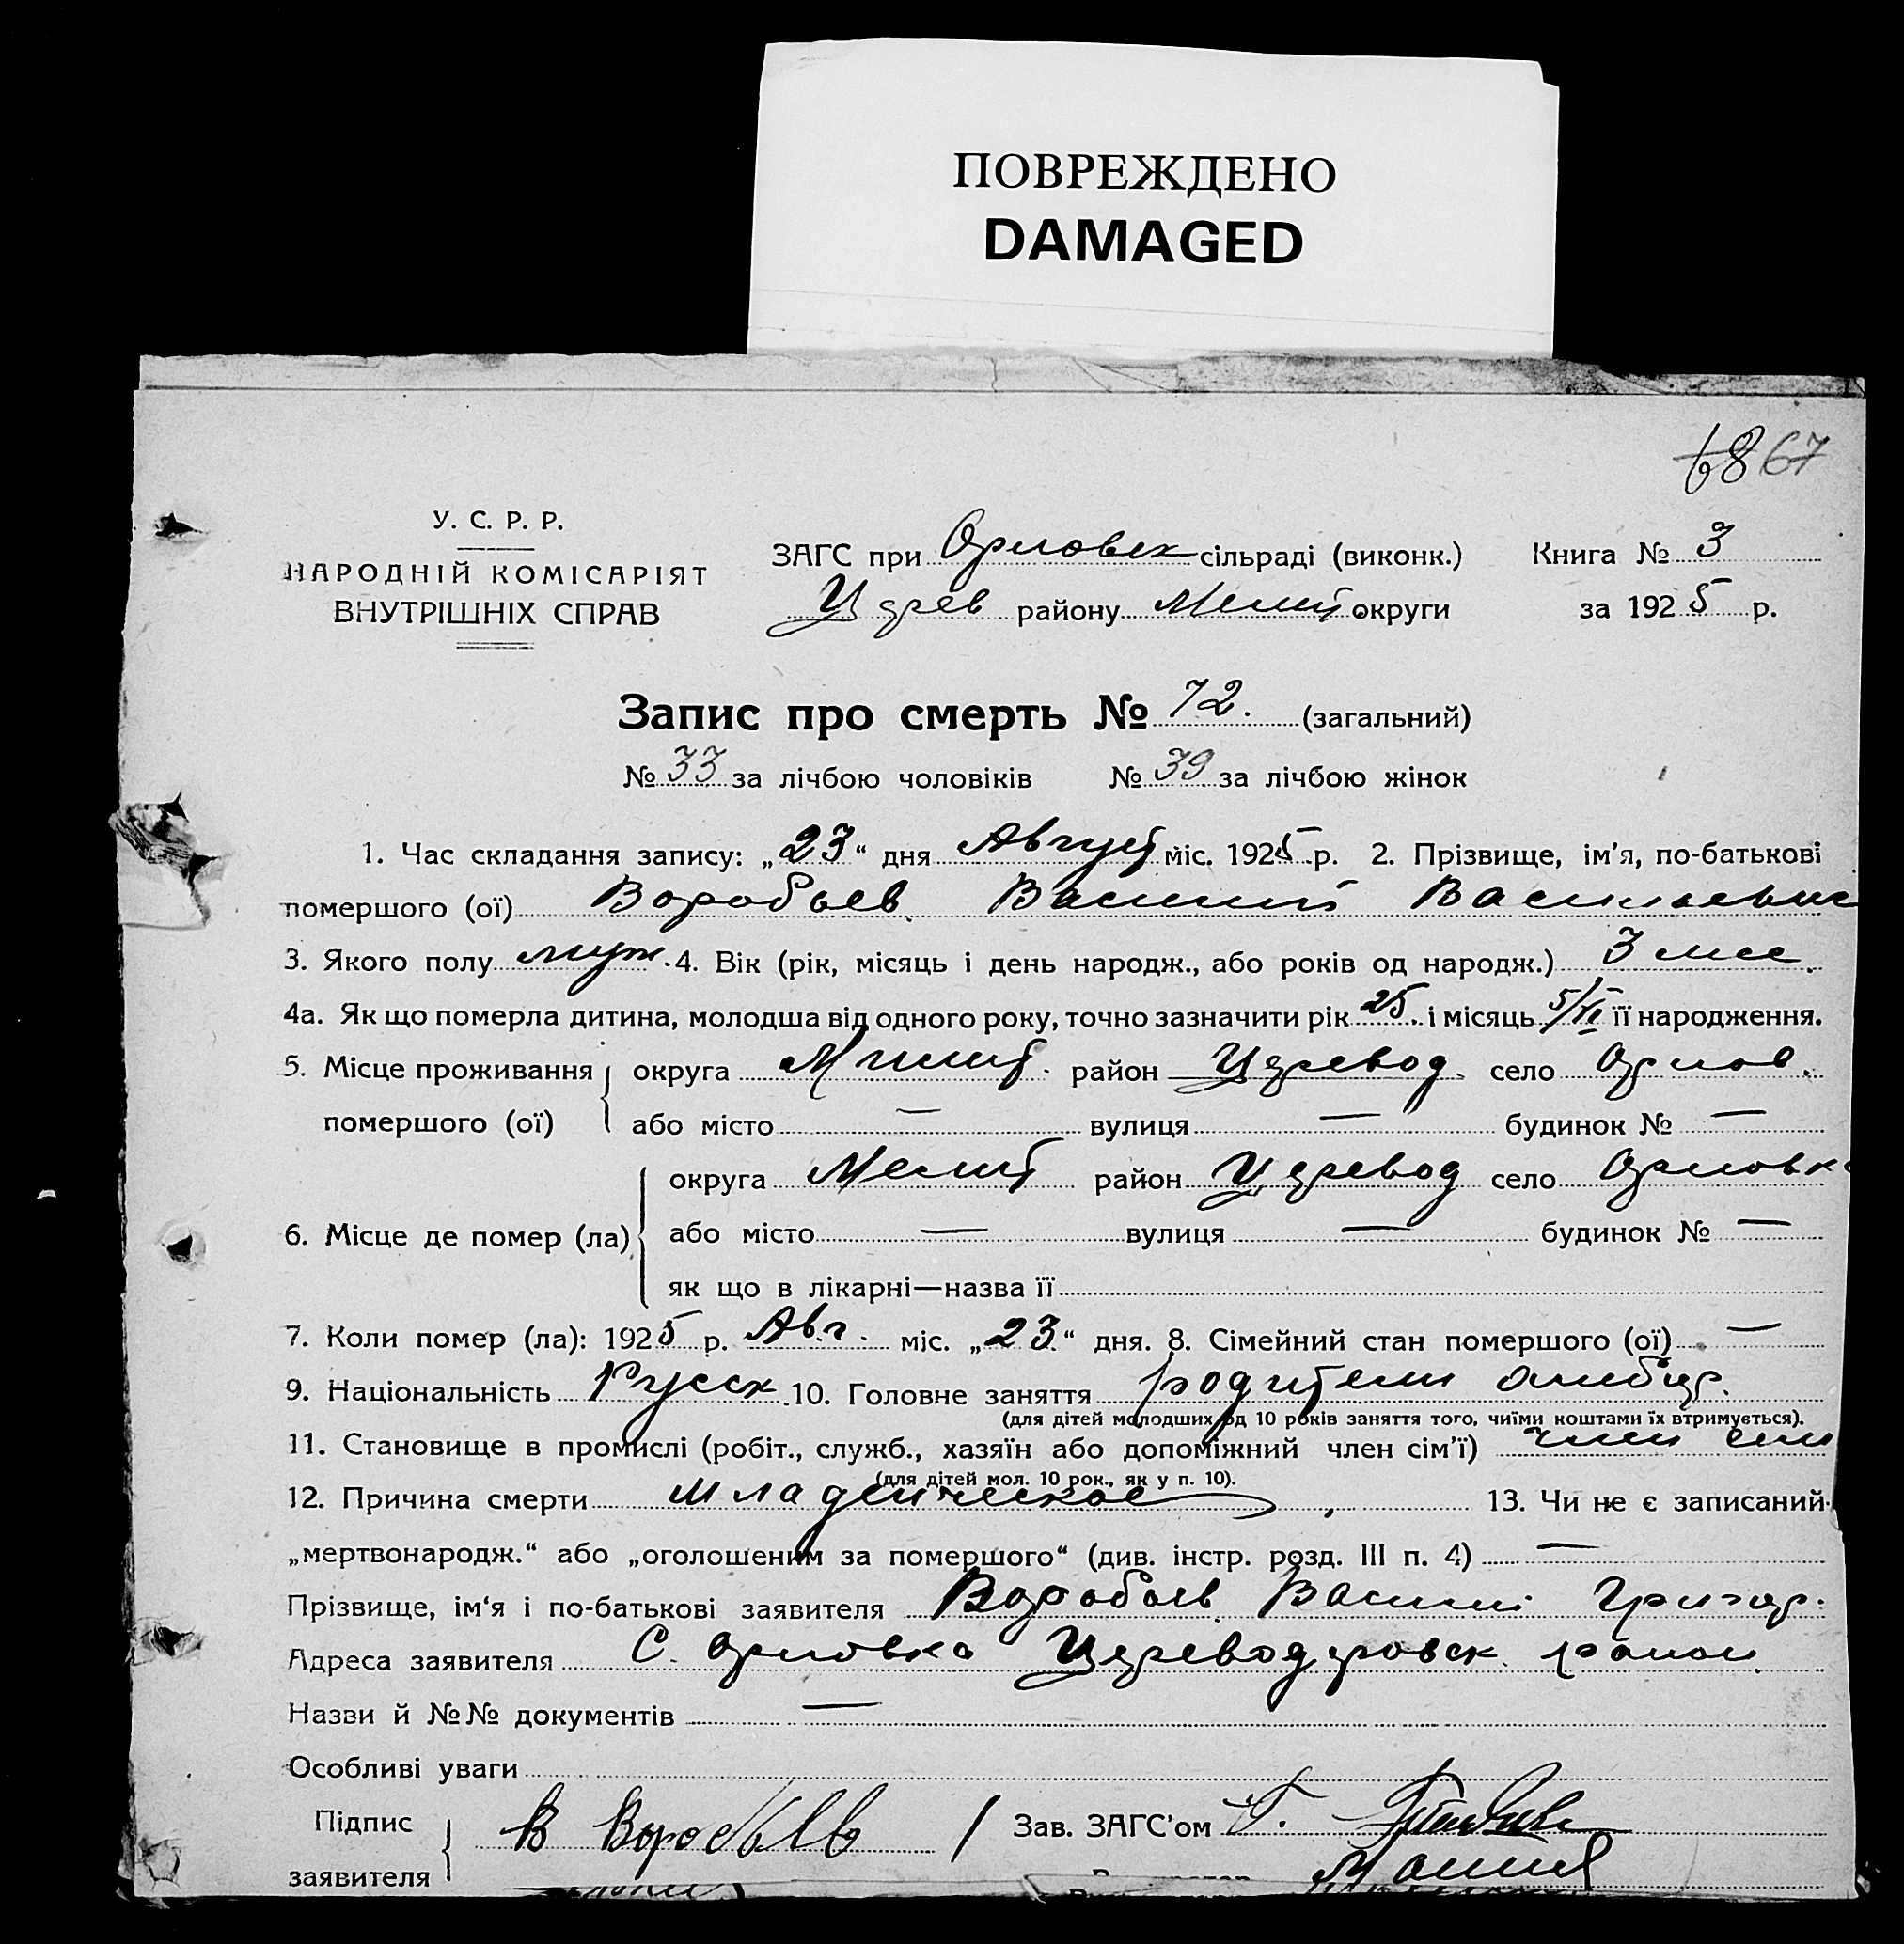 ПОВРЕЖДЕНО
DAMAGED
68 67
У. С. Р. Р.
НАРОДНІЙ КОМІСАРІЯТ
ВНУТРІШНІХ СПРАВ
ЗАГС при Орловск сільраді (виконк.) Книга № 3
Цэрев району Мелит округи за 1925 р.
Запис про смерть № 72. (загальний)
№ 33 за лічбою чоловіків № 39 за лічбою жінок
1. Час складання запису: „23“ дня Август міс. 1925 р. 2. Прізвище, ім'я, по-батькові
помершого (ої) Воробьев Василий Васильевич
3. Якого полу муж. 4. Вік (рік, місяць і день народж., або років од народж.) 3 мес.
4а. Як що померла дитина, молодша від одного року, точно зазначити рік 25. і місяць 5/VI її народження.
5. Місце проживання округа Мелит. район Цэревод. село Орлов.
помершого (ої) або місто — вулиця — будинок № —
округа Мелит район Цэревод село Орловка
6. Місце де помер (ла) або місто — вулиця — будинок № —
як що в лікарні—назва її
7. Коли помер (ла): 1925 р. Авг. міс. „23“ дня. 8. Сімейний стан помершого (ої) —
9. Національність Русск. 10. Головне заняття родители
(для дітей молодших од 10 років заняття того, чиїми коштами їх втримується).
11. Становище в промислі (робіт., служб., хазяїн або допоміжний член сім'ї) член сем
(для дітей мол. 10 рок., як у п. 10).
12. Причина смерти Младенческое 13. Чи не є записаний
„мертвонародж.“ або „оголошеним за помершого“ (див. інстр. розд. III п. 4) —
Прізвище, ім'я і по-батькові заявителя Воробьев Василий Григор.
Адреса заявителя С. Орловка Цэреводзровск. район
Назви й №№ документів —
Особливі уваги
Підпис В Воробьев Зав. ЗАГС'ом
заявителя